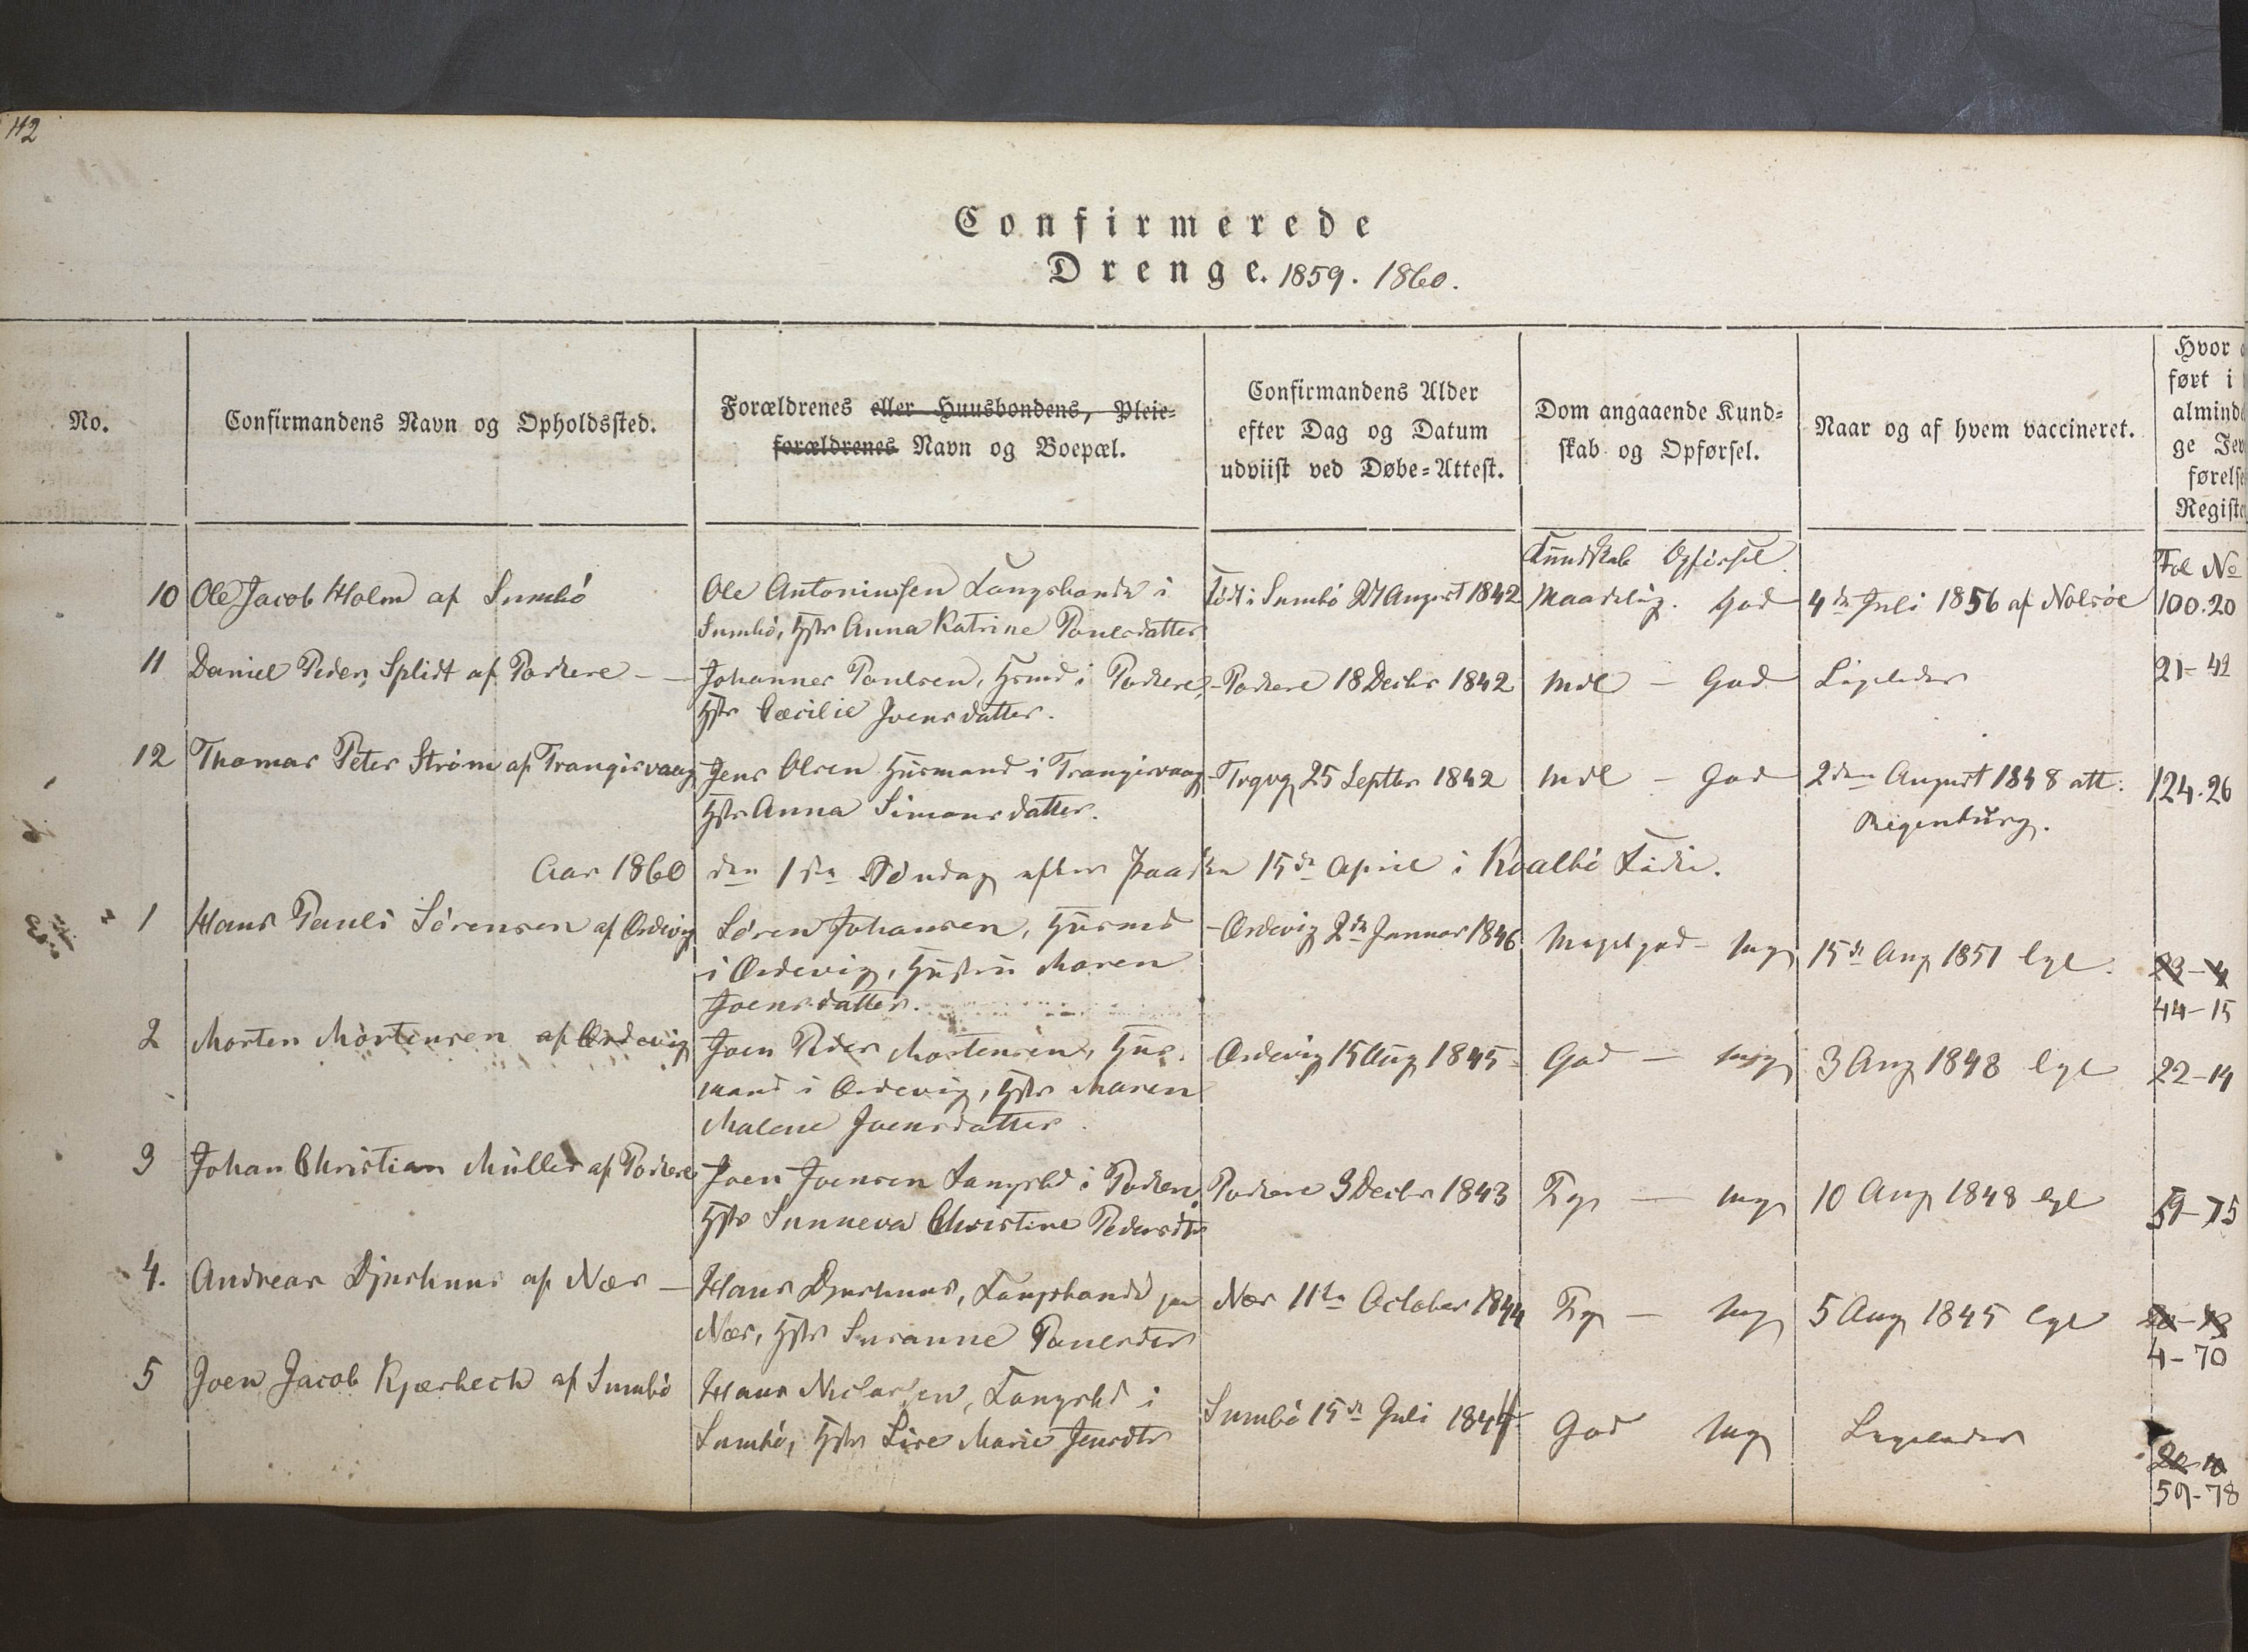 112
Confirmerede
Drenge. 1859. 1860.
No.
Confirmandens Navn og Opholdssted.
Forældrenes eller Huusbondens, Pleie-
forældrenes Navn og Boepæl.
Confirmandens Alder
efter Dag og Datum
udviist ved Døbe-Attest.
Dom angaaende Kund-
skab og Opførsel.
Naar og af hvem vaccineret.
Hvor
ført i
almind
ge Jev
førelse
Registe
Kundskab Opførsel
Fol No
10 Ole Jacob Holm af Sumbø
Ole Antoniussen Kongsbonde i
Sumbø, Hstr Anna Katrine Poulsdatter
Født i Sumbø 27 August 1842
Maadelig. God
4de Juli 1856 af Nolsøe
100.20
11 Daniel Peder Splidt af Porkere -
Johannes Poulsen, Hsmd i Porkere,
Hstr Cæcilie Joensdatter.
- Porkere 18 Decbr 1842
Mdl - God
Ligeledes
21-42
12 Thomas Peter Strøm af Trangisvaag
Jens Olsen Husmand i Trangisvaag
Hstr Anna Simonsdatter.
- Trgvg 25 Septbr 1842
Mdl - God
2den August 1848 att:
Regenburg.
124.26
Aar 1860 den 1ste Søndag efter Paaske 15de April i Kvalbø Kirke.
1 Hans Pauli Sørensen af Ørdevig
Søren Johansen, Husmd
i Ørdevig, Hustru Maren
Joensdatter.
- Ørdevig 2de Januar 1846
Megetgod - mg
15de Aug 1851 lgl.
23-4
44-15
2 Morten Mortensen af Ørdevig
Joen Peder Mortensen, Hus-
mand i Ørdevig, Hstr Maren
Malene Joensdatter.
Ørdevig 15 Aug 1845
God - mg
3 Aug 1848 lgl
22-14
3 Johan Christian Müller af Porkere
Joen Joensen Kongsbd i Porkere,
Hstr Sunneva Christine Pedersdtr
Porkere 3 Decbr 1843
Tg - mg
10 Aug 1848 lgl
59-75
4. Andreas Djurhuus af Næs -
Hans Djurhuus, Kongsbonde paa
Næs, Hstr Susanne Poulsdtr
Næs 11te October 1844
Tg - mg
5 Aug 1845 lgl
4-70
5 Joen Jacob Kjærbech af Sumbø
Hans Niclassen, Kongsbd i
Sumbø, Hstr Lise Marie Jensdtr
Sumbø 15de Juli 1844
God mg
Ligeledes
59-78